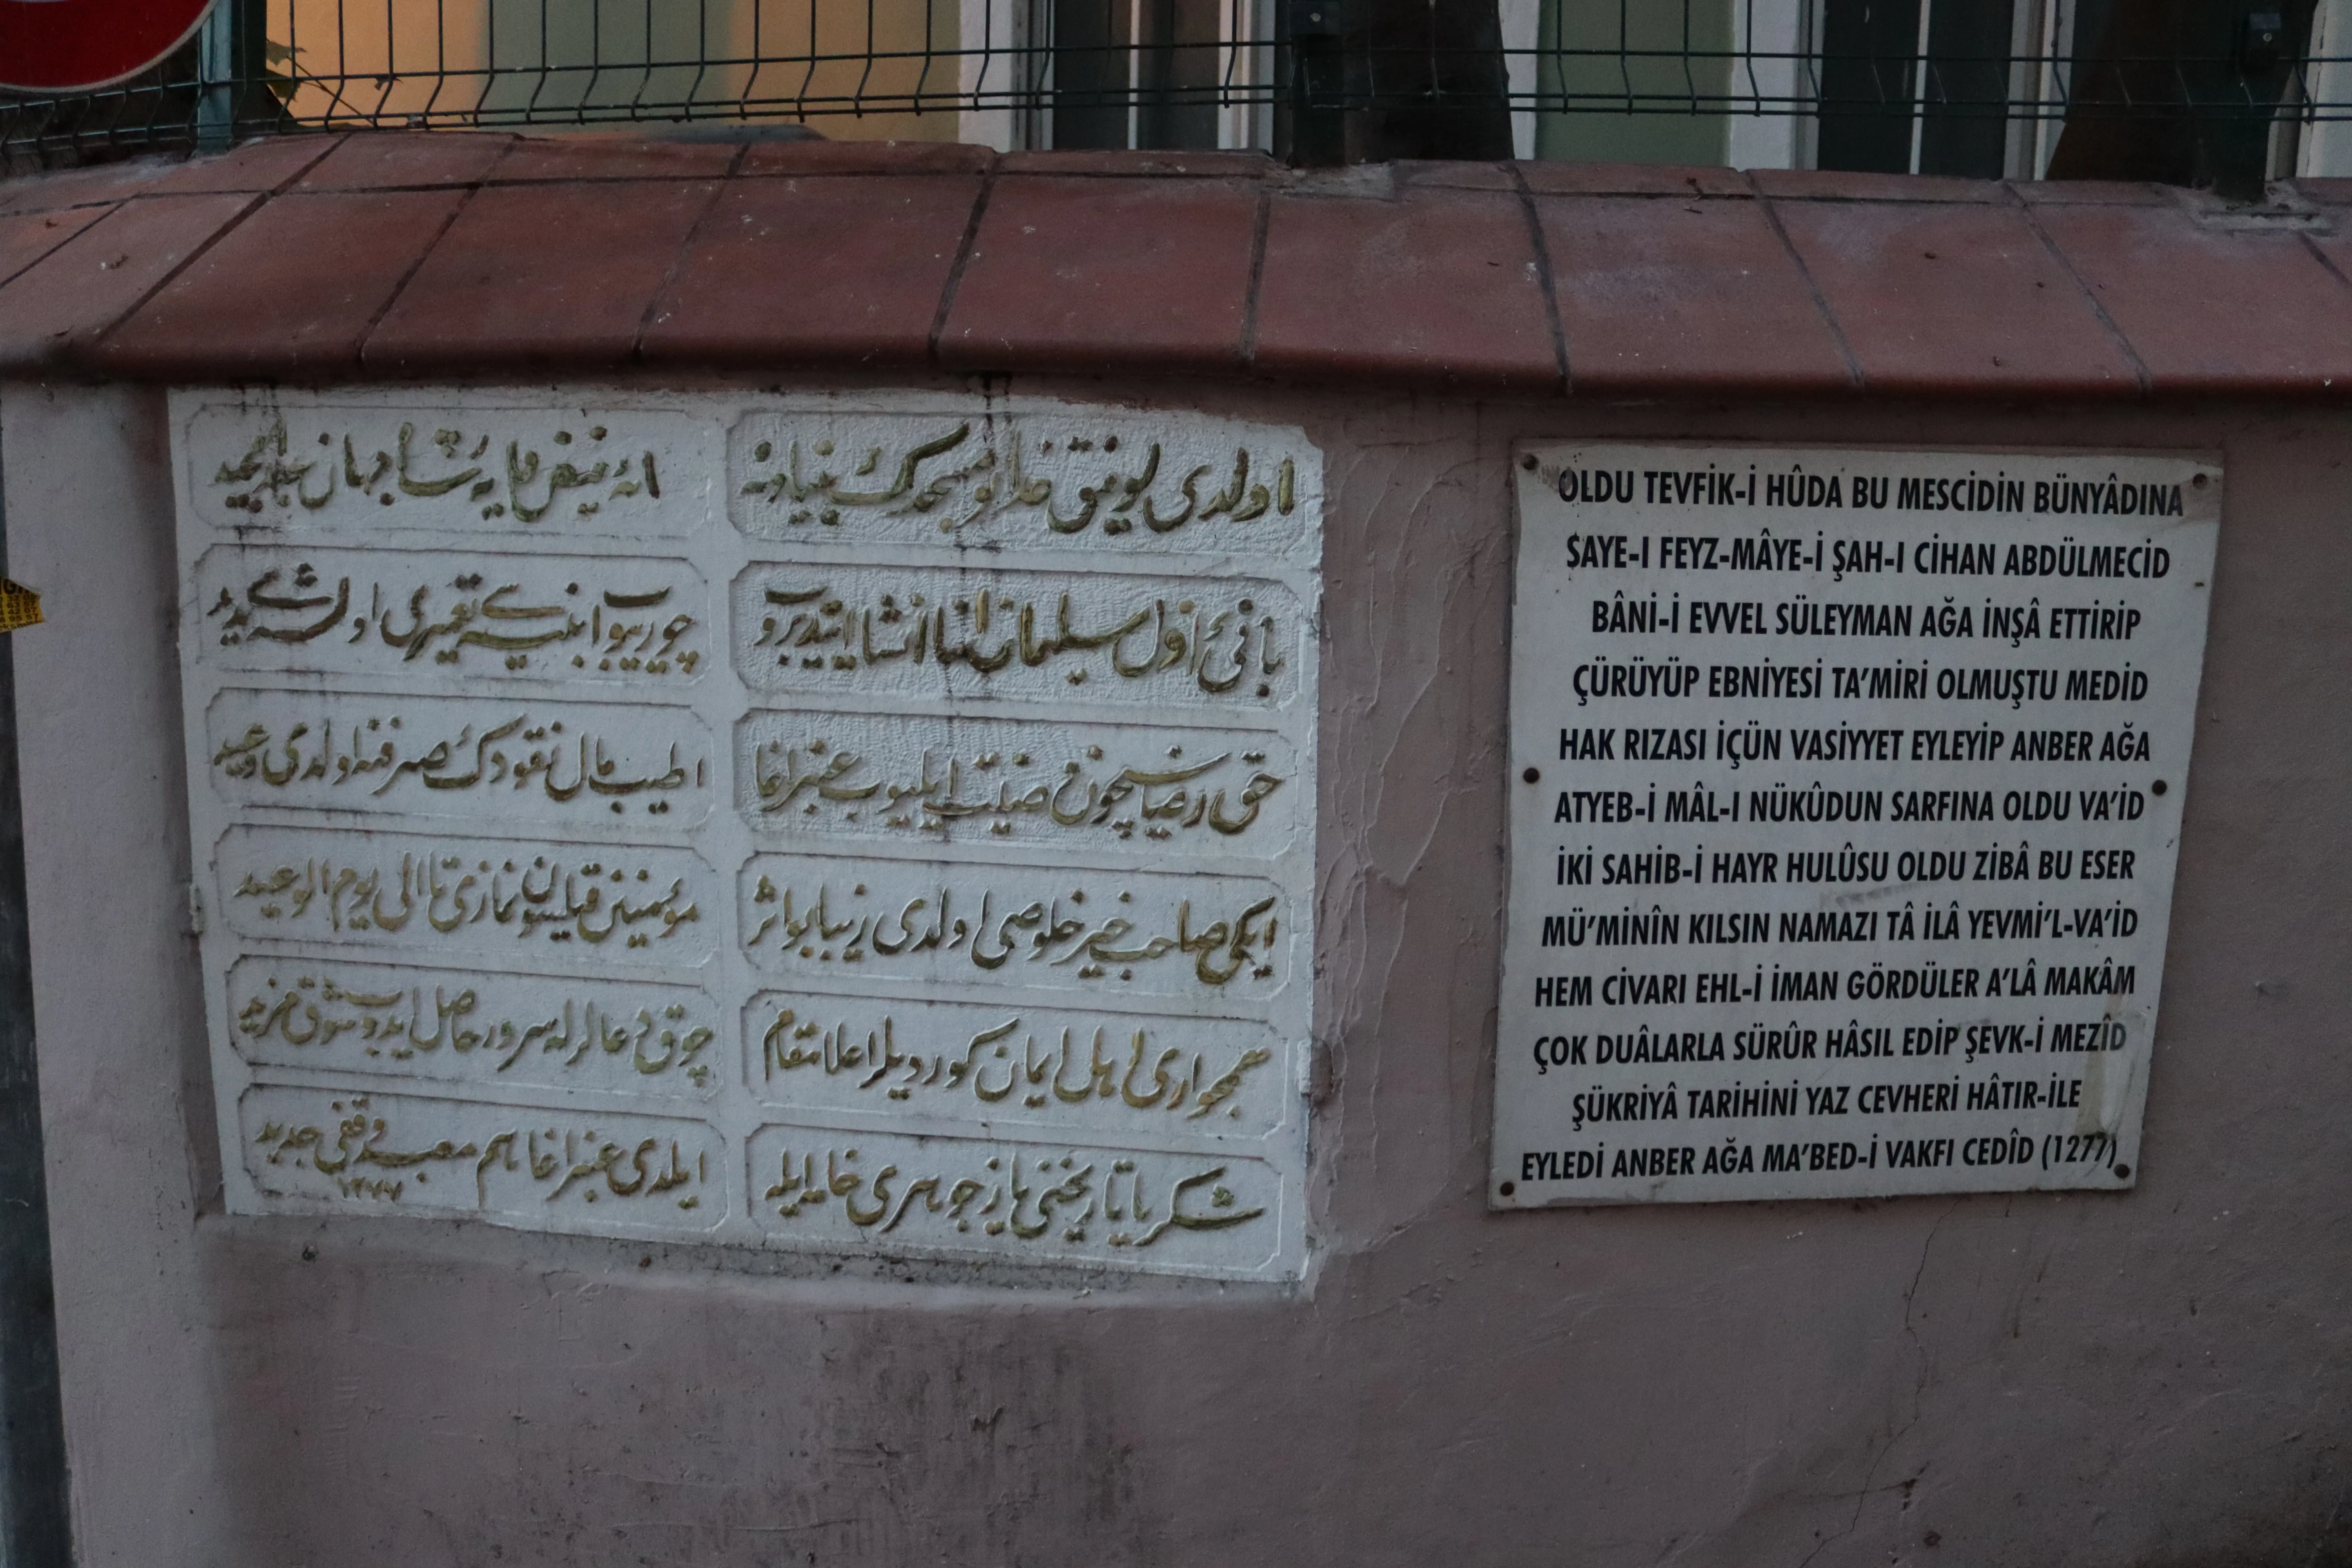 اولدی توفیق خدا بو مسجدك بنیادنه
سایه فیض مایه شاه جهان عبدالمجید
بانئ اول سلیمان اغا انشا ایتدیروب
چوریوب ابنیه‌سی تعمیری اولمشدی مدید
حق رضاسیچون وصیت ایلیوب عنبر اغا
اطیب مال نقودك صرفنه اولدی وعید
ایکی صاحب خیر خلوصی اولدی زیبا بو اثر
مؤمنین قیلسون نمازی تا الی یوم الوعید
همجواری اهل ایمان کوردیلر اعلا مقام
چوق دعالرله سرور حاصل ایدوب شوق مزید
شکریا تاریخنی یاز جوهری خامه ایله
ایلدی عنبر اغا هم معبد وقفی جدید
١٢٧٧
OLDU TEVFİK-İ HÛDA BU MESCİDİN BÜNYÂDINA
SAYE-I FEYZ-MÂYE-İ ŞAH-I CİHAN ABDÜLMECİD
BÂNİ-İ EVVEL SÜLEYMAN AĞA İNŞÂ ETTİRİP
ÇÜRÜYÜP EBNİYESİ TA'MİRİ OLMUŞTU MEDİD
HAK RIZASI İÇÜN VASİYYET EYLEYİP ANBER AĞA
ATYEB-İ MÂL-I NÜKÛDUN SARFINA OLDU VA'İD
İKİ SAHİB-İ HAYR HULÛSU OLDU ZİBÂ BU ESER
MÜ'MİNÎN KILSIN NAMAZI TÂ İLÂ YEVMİ'L-VA'İD
HEM CİVARI EHL-İ İMAN GÖRDÜLER A'LÂ MAKÂM
ÇOK DUÂLARLA SÜRÛR HÂSIL EDİP ŞEVK-İ MEZÎD
ŞÜKRİYÂ TARİHİNİ YAZ CEVHERİ HÂTIR-İLE
EYLEDİ ANBER AĞA MA'BED-İ VAKFI CEDÎD (1277)